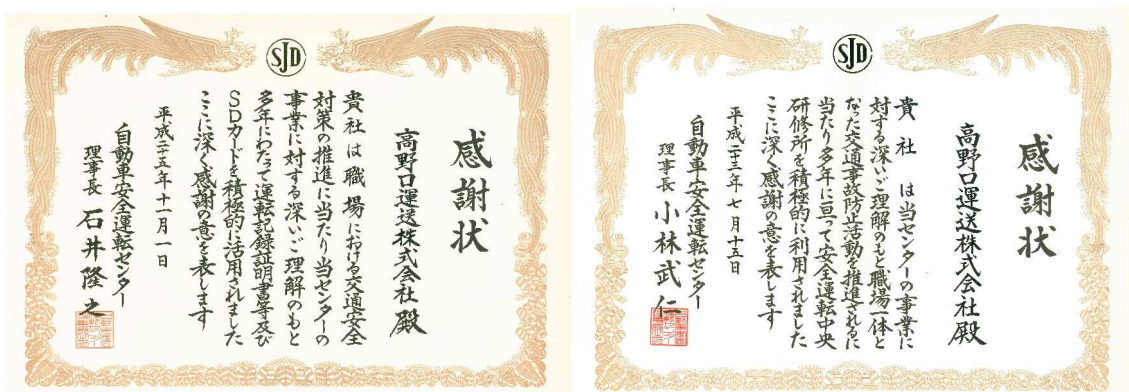 SJD
感謝状
高野口運送株式会社殿
貴社は職場における交通安全
対策の推進に当たり当センターの
事業に対する深いご理解のもと
多年にわたって運転記録証明書等及び
SDカードを積極的に活用されました
ここに深く感謝の意を表します
平成二十五年十一月一日
自動車安全運転センター
理事長 石井隆之
SJD
感謝状
高野口運送株式会社殿
貴社 は当センターの事業に
対する深いご理解のもと職場一体と
なった交通事故防止活動を推進されるに
当たり多年に亘って安全運転中央
研修所を積極的に利用されました
ここに深く感謝の意を表します
平成二十三年七月十五日
自動車安全運転センター
理事長 小林武仁